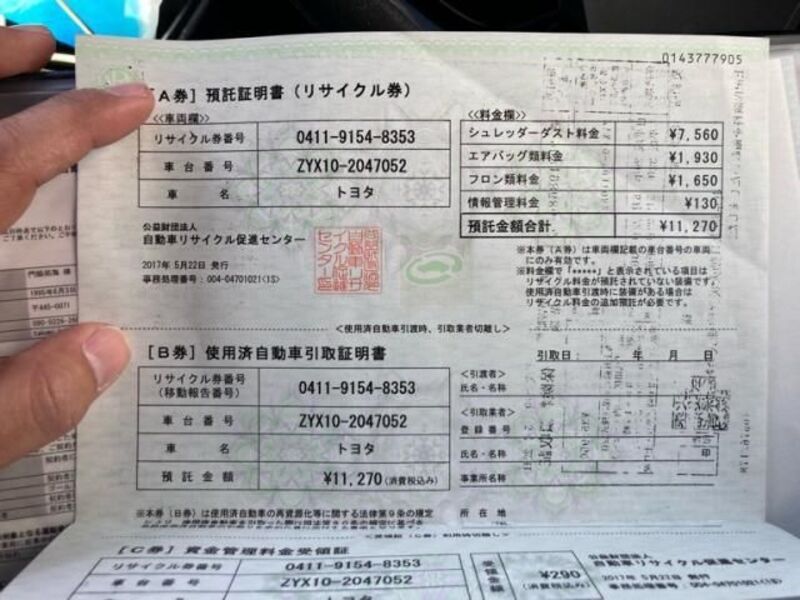 0143777905
[A券] 預託証明書 (リサイクル券)
≪車両欄≫
リサイクル券番号 0411-9154-8353
車台番号 ZYX10-2047052
車名 トヨタ
≪料金欄≫
シュレッダーダスト料金 ¥7,560
エアバッグ類料金 ¥1,930
フロン類料金 ¥1,650
情報管理料金 ¥130
預託金額合計 ¥11,270
公益財団法人
自動車リサイクル促進センター
2017年 5月22日 発行
事務処理番号:004-04701021(1S)
※本券(A券)は車両欄記載の車台番号の車両
にのみ有効です。
※料金欄で「*****」と表示されている項目は
リサイクル料金が預託されていない装備です。
使用済自動車引渡時に装備がある場合は
リサイクル料金の追加預託が必要です。
<使用済自動車引渡時、引取業者切離し>
[B券] 使用済自動車引取証明書
リサイクル券番号
(移動報告番号) 0411-9154-8353
車台番号 ZYX10-2047052
車名 トヨタ
預託金額 ¥11,270(消費税込み)
引取日: 年 月 日
<引渡者>
氏名・名称
<引取業者>
登録番号
氏名・名称 印
事業所名称
所在地
※本券(B券)は使用済自動車の再資源化等に関する法律第9条の規定
[C券] 資金管理料金受領証
リサイクル券番号 0411-9154-8353
車台番号 ZYX10-2047052
トヨタ
受領金額 ¥290
(消費税込み)
公益財団法人
自動車リサイクル促進センター
2017年 5月22日 発行